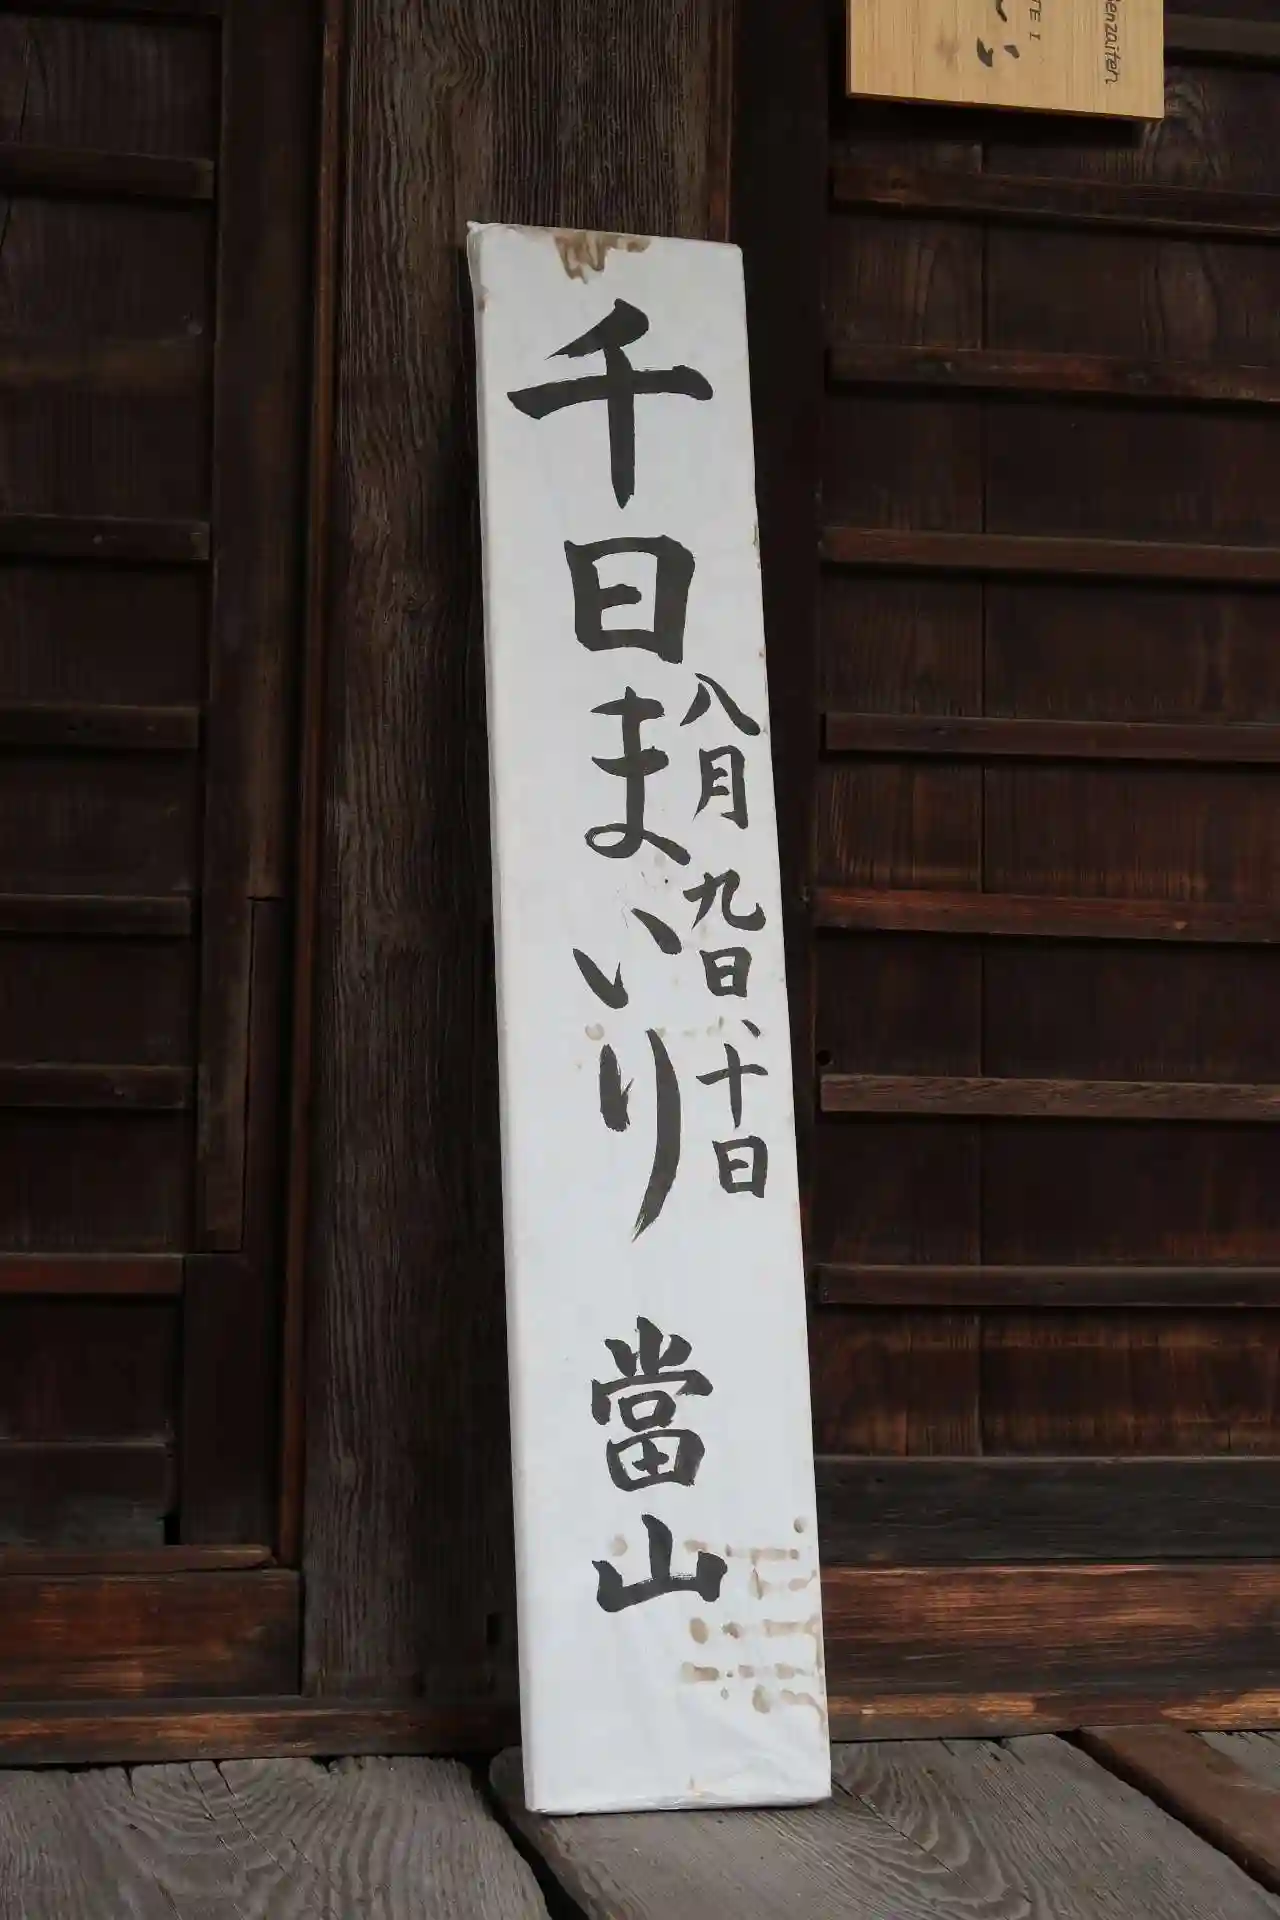 八月九日、十日
千日まいり 當山
Benzaiten